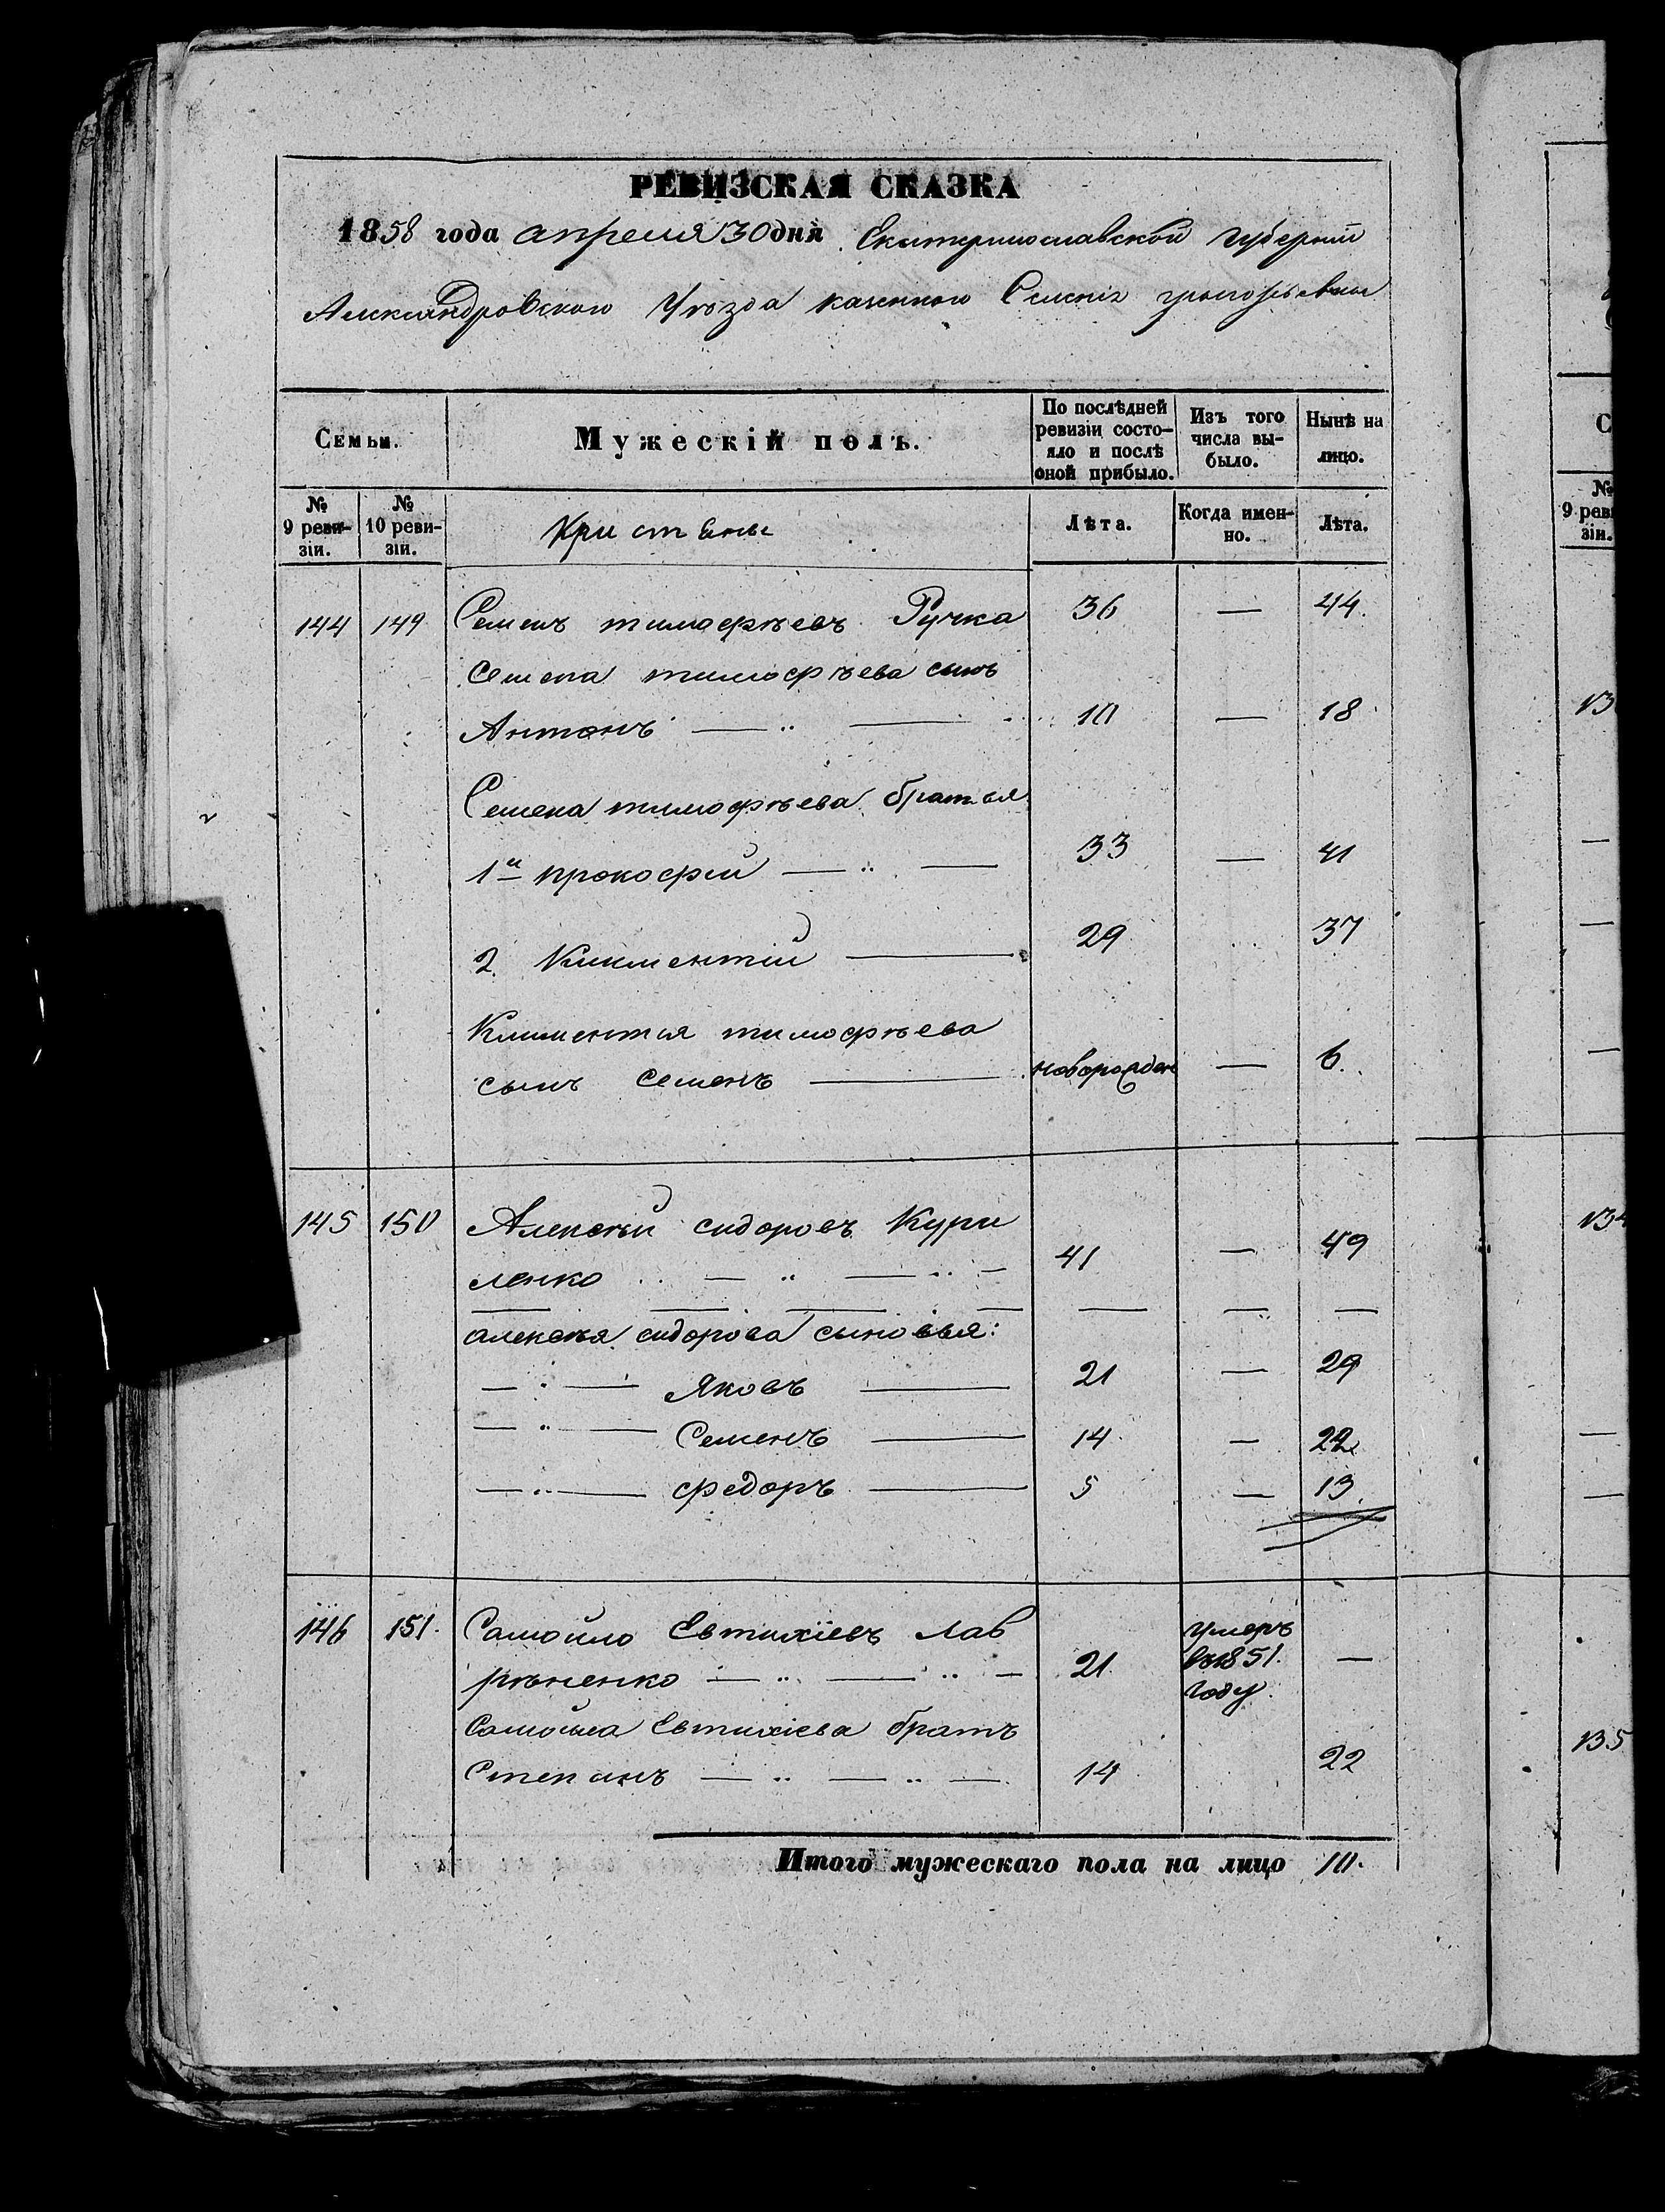 РЕВИЗСКАЯ СКАЗКА
1858 года апреля 30 дня Екатеринославской Губернии
Александровского Уѣзда казенного Селенія
Семьи.
Мужескій полъ.
По послѣдней ревизіи состо-яло и послѣ оной прибыло.
Изъ того числа вы-было.
Нынѣ на лицо.
№ 9 реви-зіи.
№ 10 реви-зіи.
Кристьяны
Лѣта.
Когда имен-но.
Лѣта.
144 149 Семенъ тимофѣевъ Ручка 36 — 44
Семена тимофѣева сынъ
Антонъ — „ — 10 — 18
Семена тимофѣева братья
1й прокофий — „ — 33 — 41
2. Климентий — 29 37
Климентия тимофѣева
сынъ Семенъ — новорожден — 6.
145 150 Алексѣй сидоровъ Кури
ленко — „ — „ — 41 — 49
алексѣя сидорова сыновья:
— „ — Яковъ — 21 — 29
— „ — Семенъ — 14 — 22
— „ — федоръ — 5 — 13
146 151. Самойло Евтихіевъ Лав
рѣненко — „ — „ — 21. умеръ въ 1851. году. —
Самойла Евтихіева братъ
Степанъ — „ — „ — 14 22
Итого мужескаго пола на лицо 10.
9 рев
зіи.